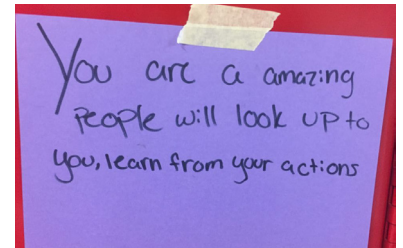 You are a amazing
people will look up to
you, learn from your actions